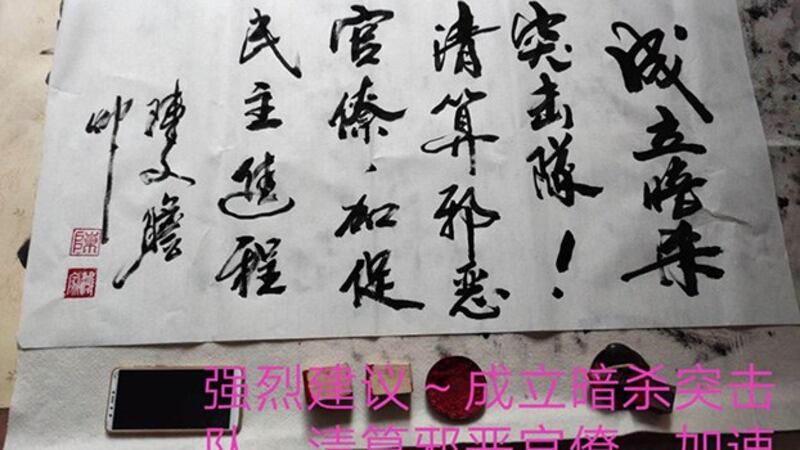 成立暗杀
突击隊！
清算邪恶
官僚，加促
民主進程
陳文瞻
叩
强烈建议～成立暗杀突击
队，清算邪恶官僚，加速